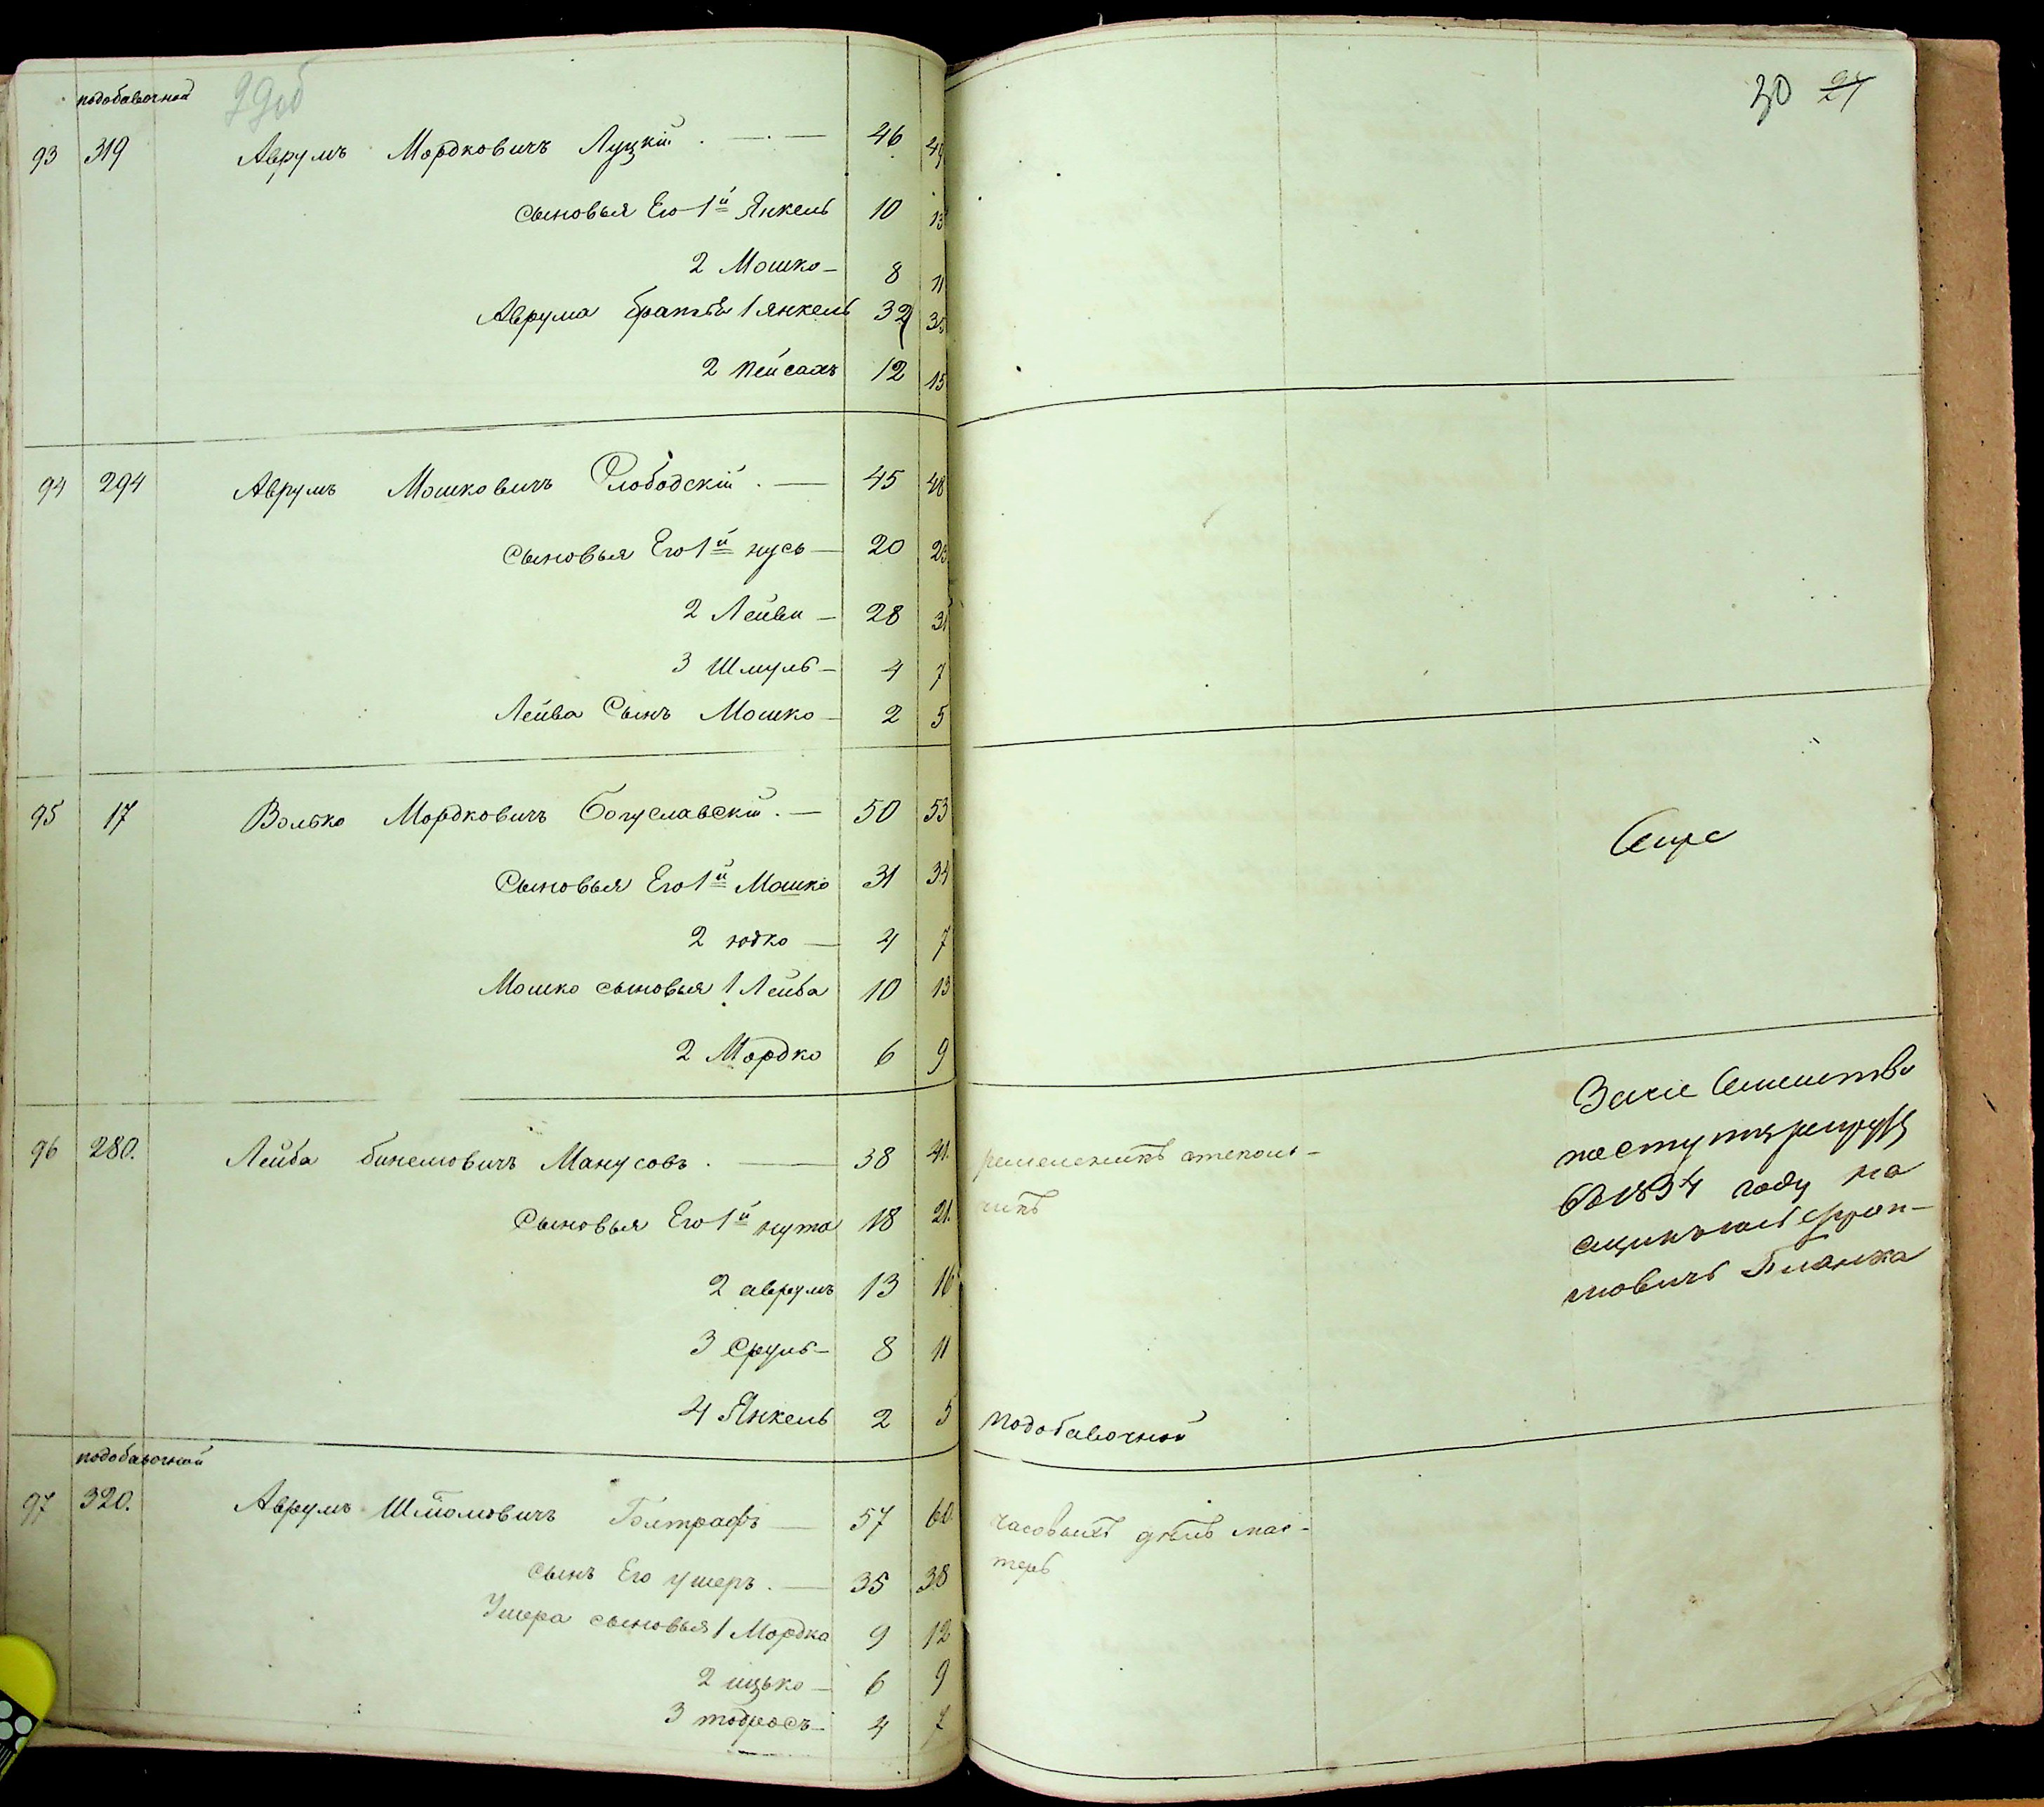 подобавочной
29об
93 319 Аврумъ Мордковичъ Луцкій 46 49
сыновья Его 1й Янкель 10 13
2 Мошко 8 11
Аврума братья 1 Янкель 32 35
2 Пейсахъ 12 15
94 294 Аврумъ Мошковичъ Слободскій 45 48
Сыновья Его 1й нусь 20 23
2 Лейви 28 31
3 Шмуль 4 7
Лейва Сынъ Мошко 2 5
95 17 Волько Мордковичъ Богуславскій 50 53
Сыновья Его 1й Мошко 31 34
2 юдко 4 7
Мошко сыновья 1 Лейба 10 13
2 Мордко 6 9
96 280. Лейба бинемовичъ Манусовъ 38 41.
Сыновья Его 1й нута 18 21.
2 аврумъ 13 16
3 Сруль 8 11
4 Янкель 2 5
подобавочной
97 320. Аврумъ Шмоловичъ 57 60
сынъ Его ушеръ 35 38
Ушера сыновья 1 Мордка 9 12
2 ицько 6 9
3 тодросъ 4 7
30
ремесленикъ стеколь-
чикъ
подобавочной
часовыхъ дѣлъ мас-
теръ
въ 1834 году на